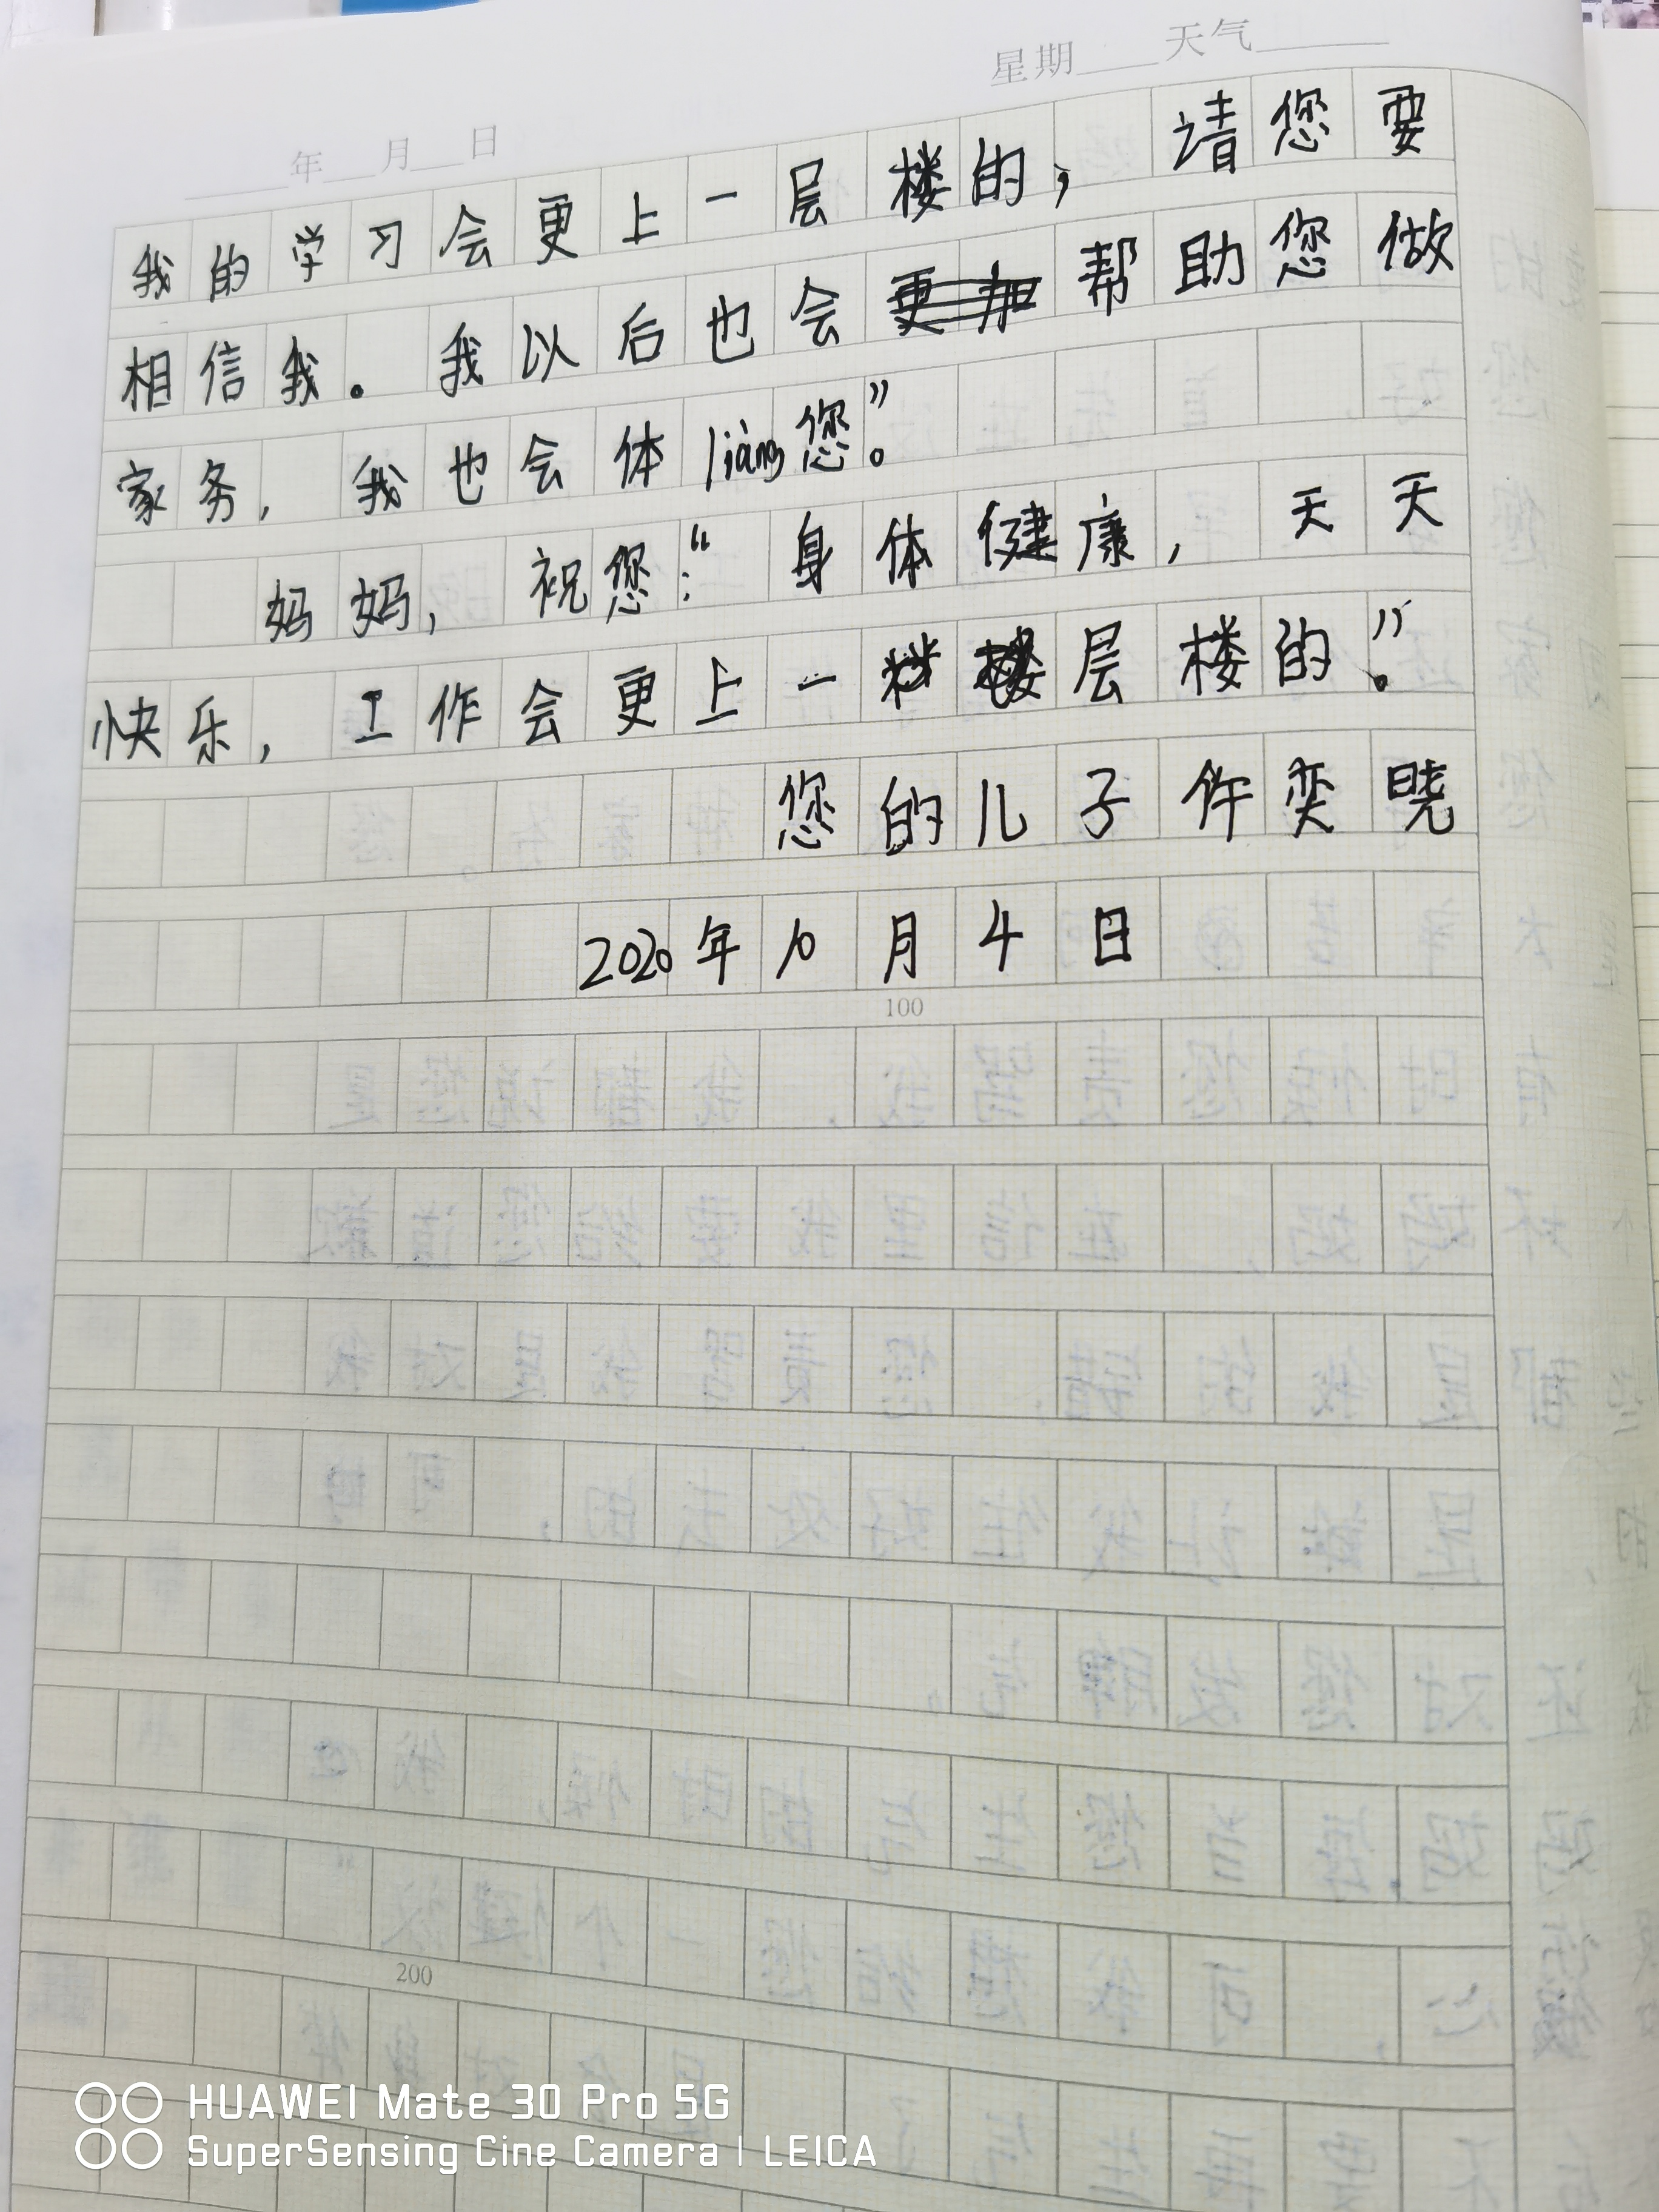 星期 天气
年 月 日
我的学习会更上一层楼的，请您要
相信我。我以后也会帮助您做
家务，我也会体liàng您。”
妈妈，祝您：“身体健康，天天
快乐，工作会更上一层楼的。”
您的儿子许奕晓
2020年10月4日
100
200
HUAWEI Mate 30 Pro 5G
SuperSensing Cine Camera | LEICA